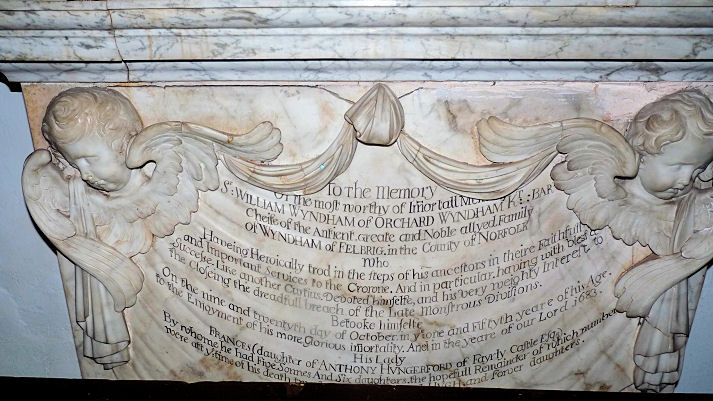 To the Memory
Of the most worthy of Imortall
Sr. WILLIAM WYNDHAM OF ORCHARD WYNDHAM KT: BAR
Cheife of the Antient, greate and Noble allyed Family
of WYNDHAM of FELBRIG, in the County of NORFOLK
who
Having Heroically trod in the steps of his ancestors in theire Faithfull
and Important Services to the Crowne: And in particular, having with
Successe: Like another Curtius, Devoted himselfe, and his very weighty Interest to
The closeing the dreadfull breach of the Late Monstrous Divisions.
Betooke himselfe
On the nine and twentyth day of October, in ye one and Fiftyth yeare of his Age.
to the Enjoyment of his more glorious imortality: And in the yeare of our Lord 1683.
His Lady
FRANCES (daughter of ANTHONY HVNGERFORD of Farnly Castle Esq.
By whome he had Five Sonnes And Six daughters, the hopefull Remainder of which number
were att ye time of his death and fower daughters.